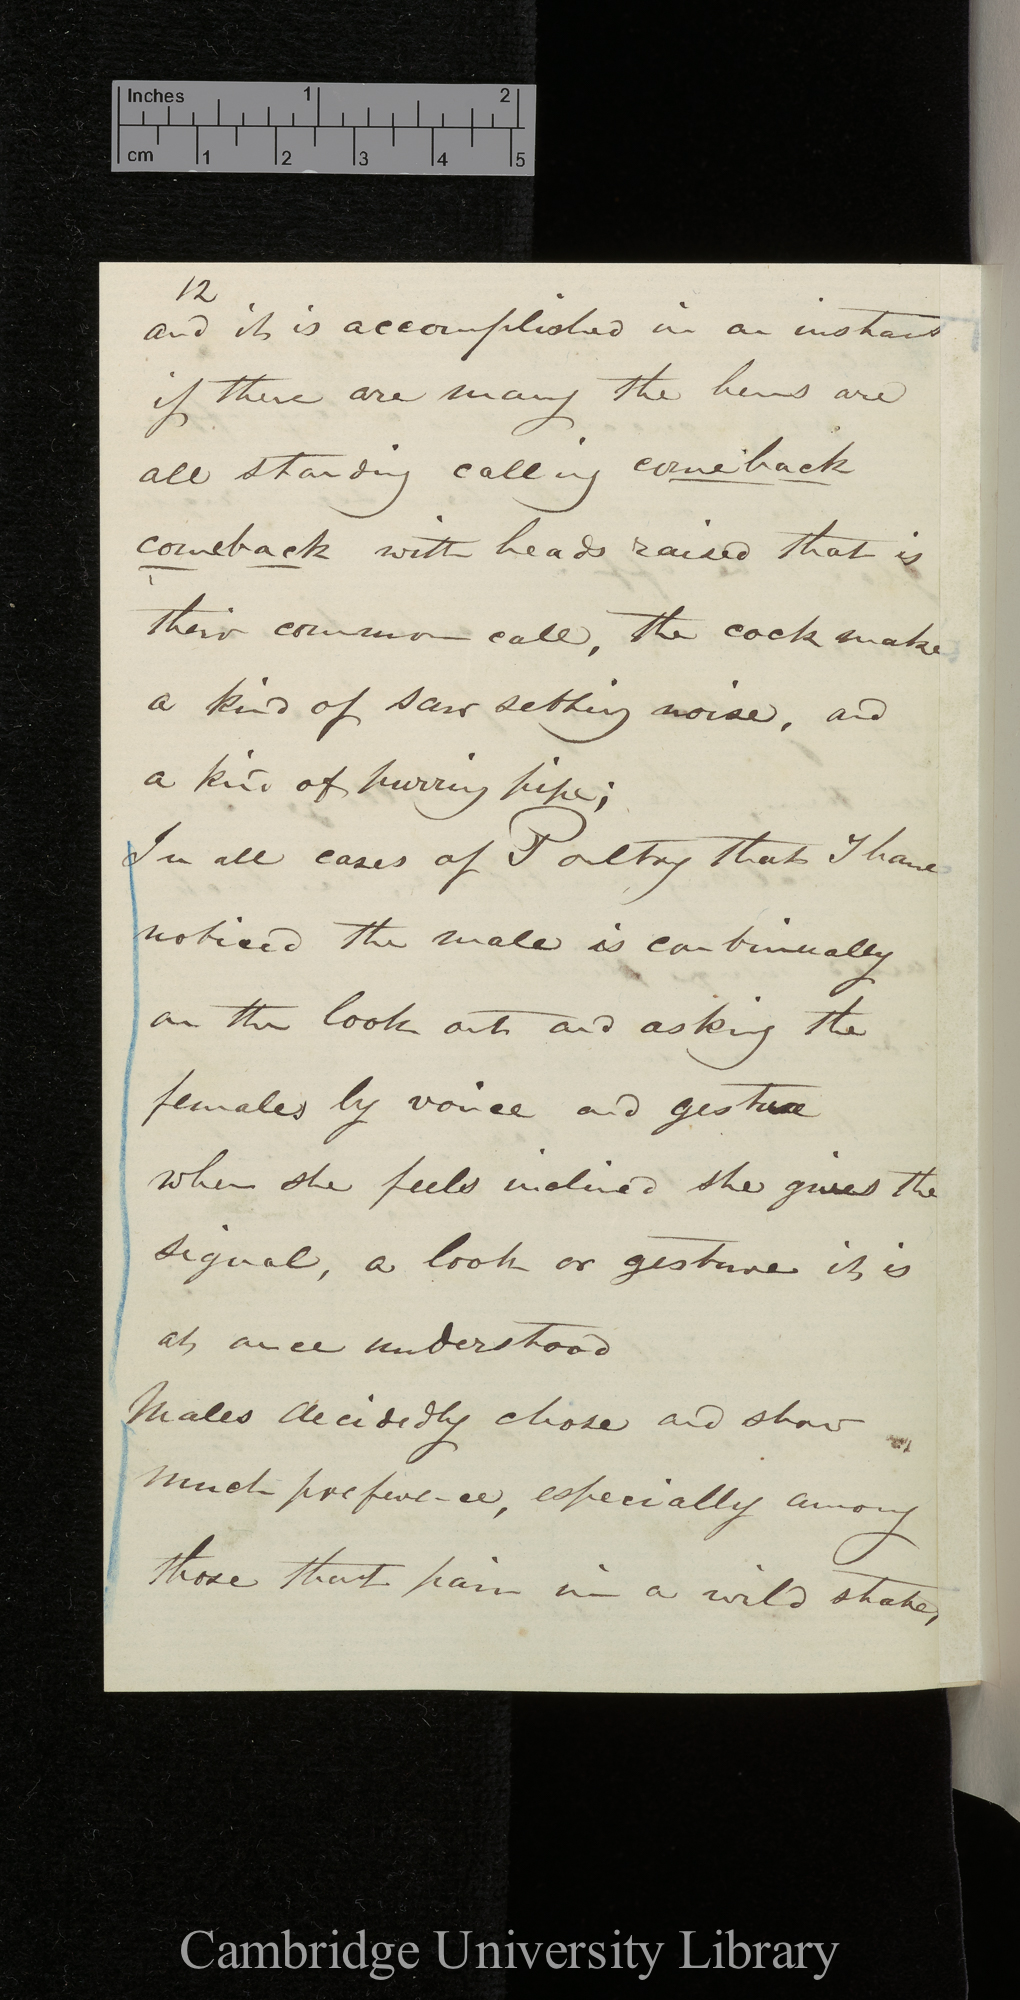 Inches 1 2
cm 1 2 3 4 5
12
and it is accomplished in an instant
if there are many the hens are
all standing calling comeback
comeback with heads raised that is
their common call, the cock make
a kind of saw setting noise, and
a kind of purring pipe;
In all cases of Poultry that I have
noticed the male is continually
on the look out and asking the
females by voice and gesture
when she feels inclined she gives the
signal, a look or gesture it is
at once understood
Males decidedly chose and show
much preference, especially among
those that pair in a wild state,
Cambridge University Library